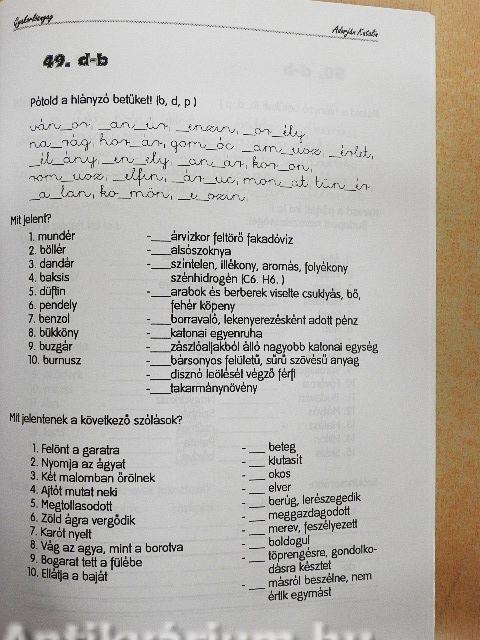 Gyakorlóanyag
Adorján Katalin
49. d-b
Pótold a hiányzó betűket! (b, d, p)
ván_or, _an_úr, _enzin, _or_ély
na_rág, hor_ár, gom_óc, _am_usz, _érlet,
_él_ány, _en_ely, _an_ár, kor_on,
rom_usz, _elfin, _ár_uc, mon_at, tün_ér
_a_lan, ko_món, _e_ozin
Mit jelent?
1. mundér -___árvízkor feltörő fakadóvíz
2. böllér -___alsószoknya
3. dandár -___színtelen, illékony, aromás, folyékony
4. baksis szénhidrogén (C6. H6. )
5. düftin -___arabok és berberek viselte csuklyás, bő,
6. pendely fehér köpeny
7. benzol -___borravaló, lekenyerezésként adott pénz
8. bükköny -___katonai egyenruha
9. buzgár -___zászlóaljakból álló nagyobb katonai egység
10. burnusz -___bársonyos felületű, sűrű szövésű anyag
-___disznó leölését végző férfi
-___takarmánynövény
Mit jelentenek a következő szólások?
1. Felönt a garatra - ___ beteg
2. Nyomja az ágyat - ___ klutasít
3. Két malomban őrölnek - ___ okos
4. Ajtót mutat neki - ___ elver
5. Megtollasodott - ___ berúg, lerészegedik
6. Zöld ágra vergődik - ___ meggazdagodott
7. Karót nyelt - ___ merev, feszélyezett
8. Vág az agya, mint a borotva - ___ boldogul
9. Bogarat tett a fülébe - ___ töprengésre, gondolko-
10. Ellátja a baját dásra késztet
- ___ másról beszélne, nem
értik egymást
Antikvárium.hu